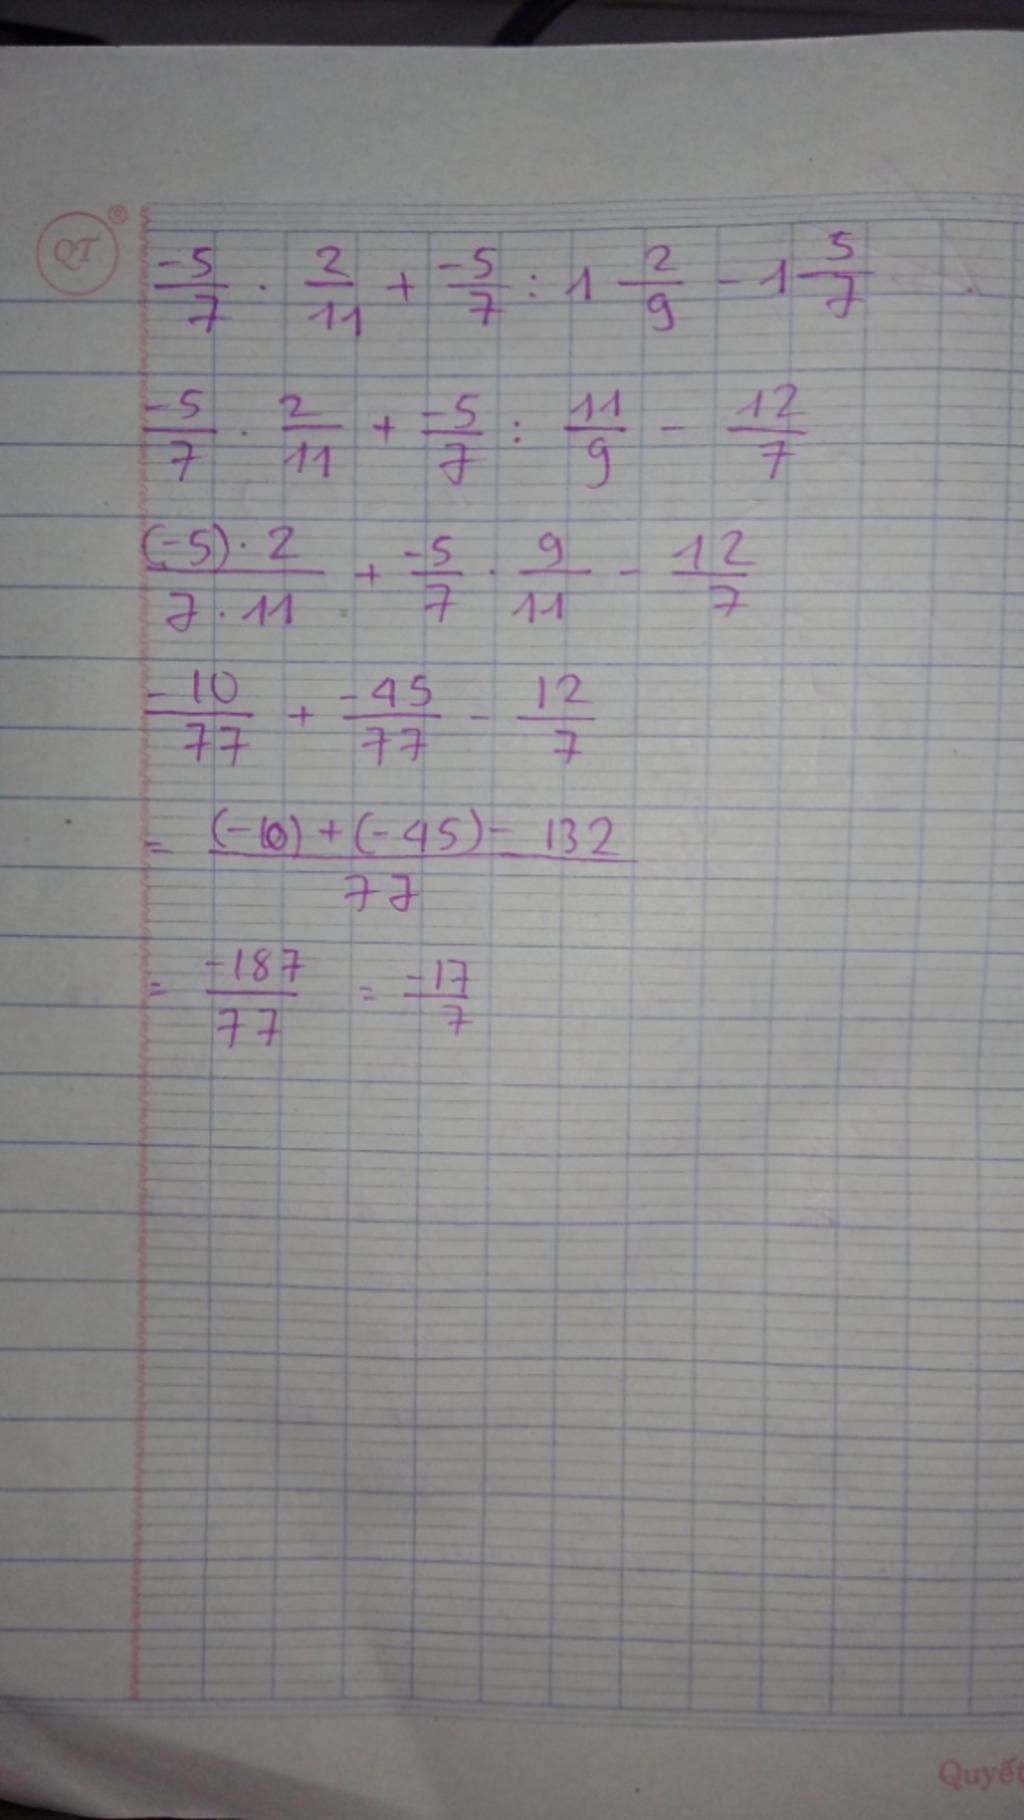 QT ®
-5/7 · 2/11 + -5/7 : 1 2/9 - 1 5/7
-5/7 · 2/11 + -5/7 : 11/9 - 12/7
(-5) · 2/7 · 11 + -5/7 · 9/11 - 12/7
-10/77 + -45/77 - 12/7
= (-10) + (-45) - 132/77
= -187/77 = -17/7
Quyết